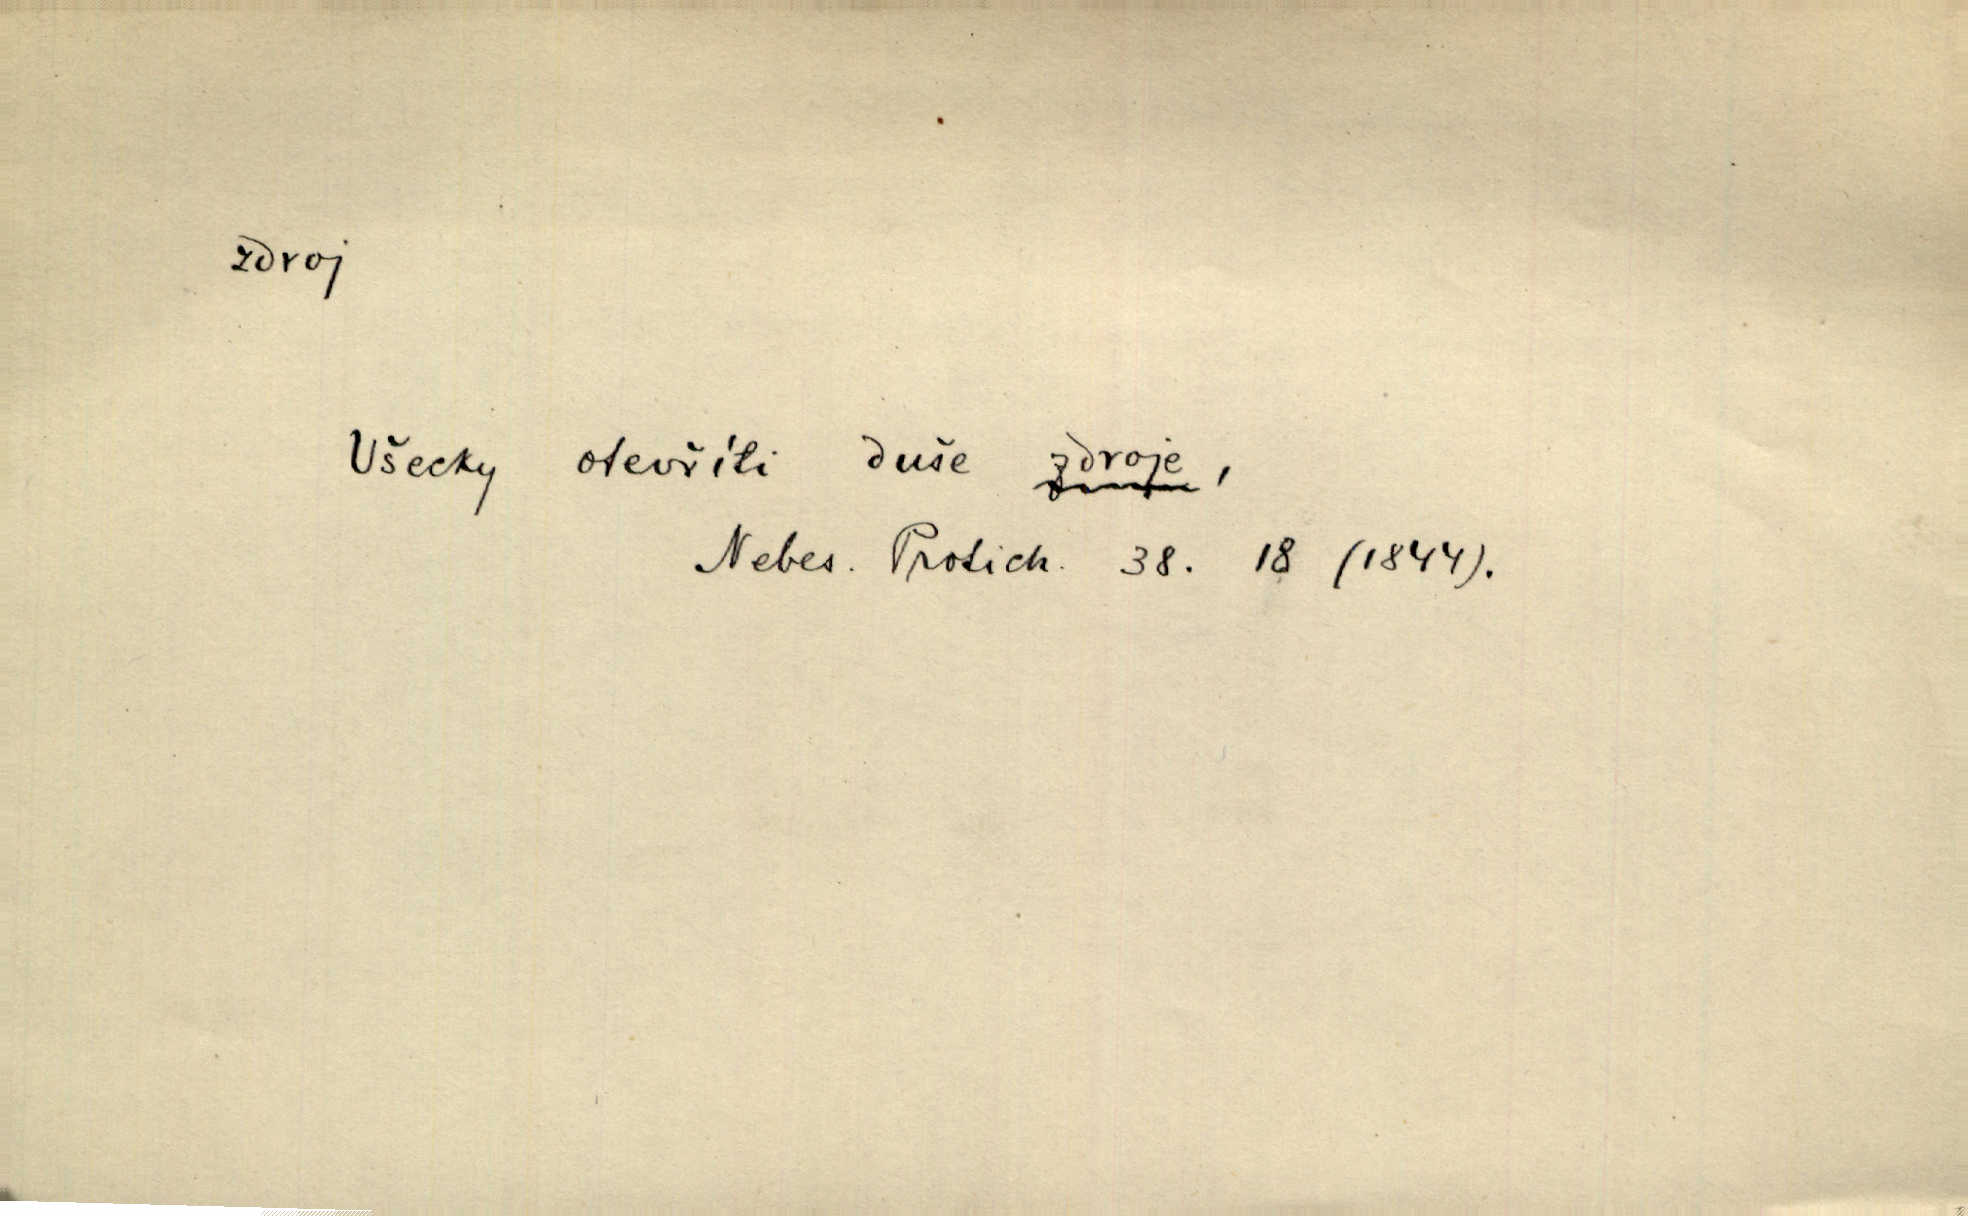 zdroj
Všecky otevříti duše zdroje,
Nebes. Protich. 38. 18 (1844).